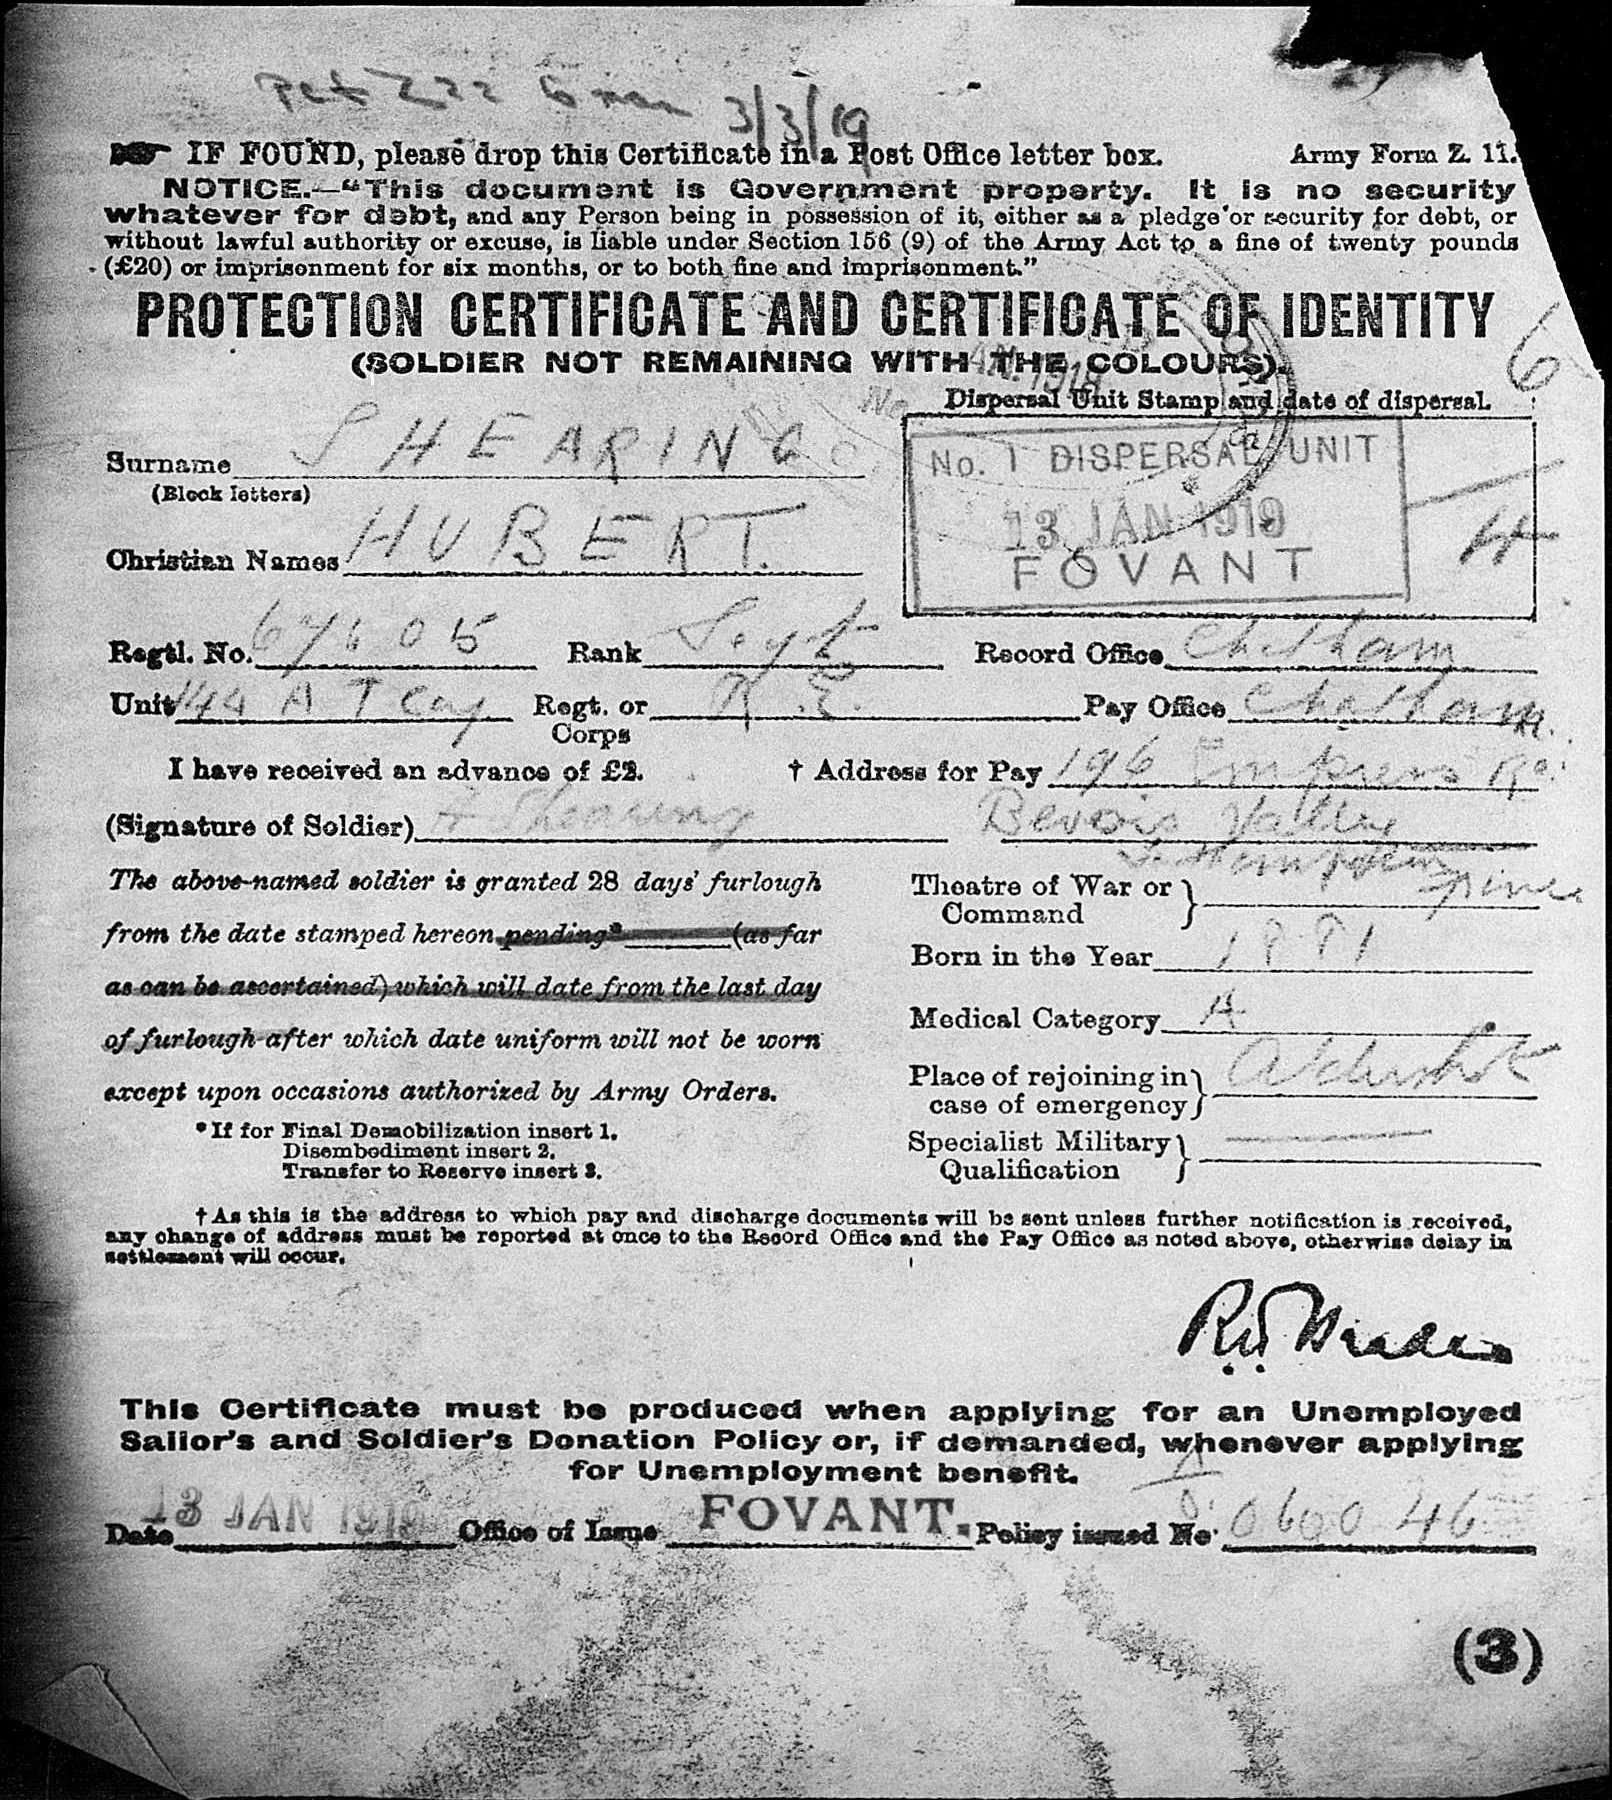 3/3/19
IF FOUND, please drop this Certificate in a Post Office letter box. Army Form Z. 11.
NOTICE.—"This document is Government property. It is no security
whatever for debt, and any Person being in possession of it, either as a pledge or security for debt, or
without lawful authority or excuse, is liable under Section 156 (9) of the Army Act to a fine of twenty pounds
(£20) or imprisonment for six months, or to both fine and imprisonment."
PROTECTION CERTIFICATE AND CERTIFICATE OF IDENTITY
(SOLDIER NOT REMAINING WITH THE COLOURS).
6
Dispersal Unit Stamp and date of dispersal.
Surname SHEARING
(Block letters)
No. 1 DISPERSAL UNIT
13 JAN 1919
FOVANT
Christian Names HUBERT.
Regtl. No. 67605 Rank Sergt Record Office Chatham
Unit 144 A T Coy Regt. or Corps R.E. Pay Office Chatham.
I have received an advance of £2. † Address for Pay 196 Empress Rd.
(Signature of Soldier) H Shearing Bevois Valley
The above-named soldier is granted 28 days' furlough
from the date stamped hereon pending* (as far
as can be ascertained) which will date from the last day
of furlough after which date uniform will not be worn
except upon occasions authorized by Army Orders.
Theatre of War or Command
Born in the Year 1881
Medical Category A
Place of rejoining in case of emergency Aldershot
Specialist Military Qualification
*If for Final Demobilization insert 1.
Disembodiment insert 2.
Transfer to Reserve insert 3.
† As this is the address to which pay and discharge documents will be sent unless further notification is received,
any change of address must be reported at once to the Record Office and the Pay Office as noted above, otherwise delay in
settlement will occur.
This Certificate must be produced when applying for an Unemployed
Sailor's and Soldier's Donation Policy or, if demanded, whenever applying
for Unemployment benefit.
Date 13 JAN 1919 Office of Issue FOVANT. Policy issued No. 060046
(3)